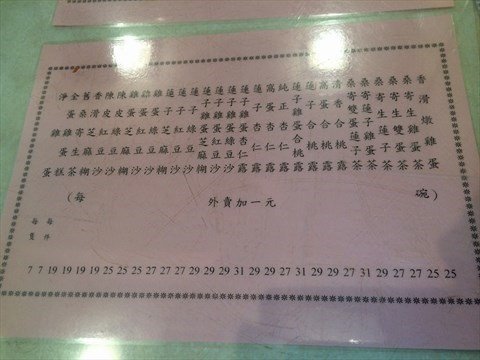 香滑燉雞蛋
桑寄生雞蛋茶
桑寄生雙蛋茶
桑寄生蓮子茶
清香合桃露
窩蛋合桃露
蓮子合桃露
蓮子雞蛋合桃露
純正杏仁露
窩蛋杏仁露
蓮子杏仁露
蓮子雞蛋杏仁露
蓮子雞蛋綠豆沙
蓮子雞蛋紅豆沙
蓮子雞蛋芝麻糊
蓮子綠豆沙
蓮子紅豆沙
蓮子芝麻糊
雞蛋綠豆沙
雞蛋紅豆沙
雞蛋芝麻糊
陳皮綠豆沙
陳皮紅豆沙
香滑芝麻糊
雞蛋糕
淨雞蛋
(每 碗)
外賣加一元
每件
每隻
7 7 19 19 19 19 25 25 25 27 27 27 29 29 29 31 29 29 31 29 29 27 31 29 27 27 25 25